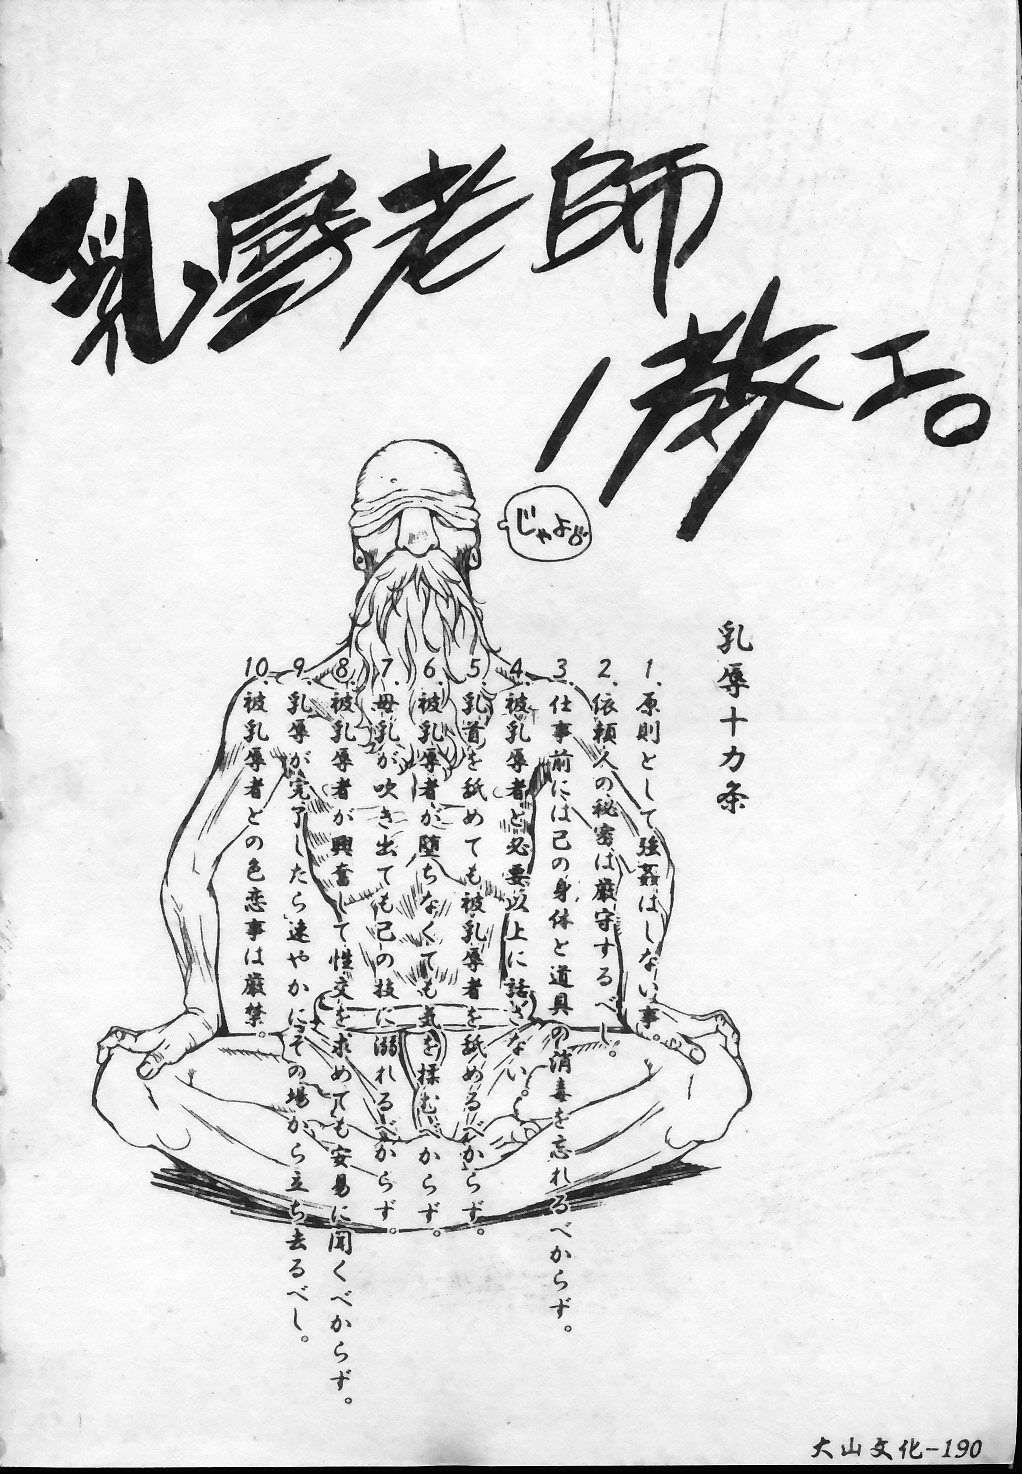 乳辱老師
ノ教エ。
じゃよ。
乳辱十カ条
1. 原則として強姦はしない事。
2. 依頼人の秘密は厳守するべし。
3. 仕事前には己の身体と道具の消毒を忘れるべからず。
4. 被乳辱者と必要以上に話さない。
5. 乳首を舐めても被乳辱者を舐めるべからず。
6. 被乳辱者が堕ちなくても気を揉むべからず。
7. 母乳が吹き出ても己の技に溺れるべからず。
8. 被乳辱者が興奮して性交を求めても安易に聞くべからず。
9. 乳辱が完了したら速やかにその場から立ち去るべし。
10. 被乳辱者との色恋事は厳禁。
大山文化-190